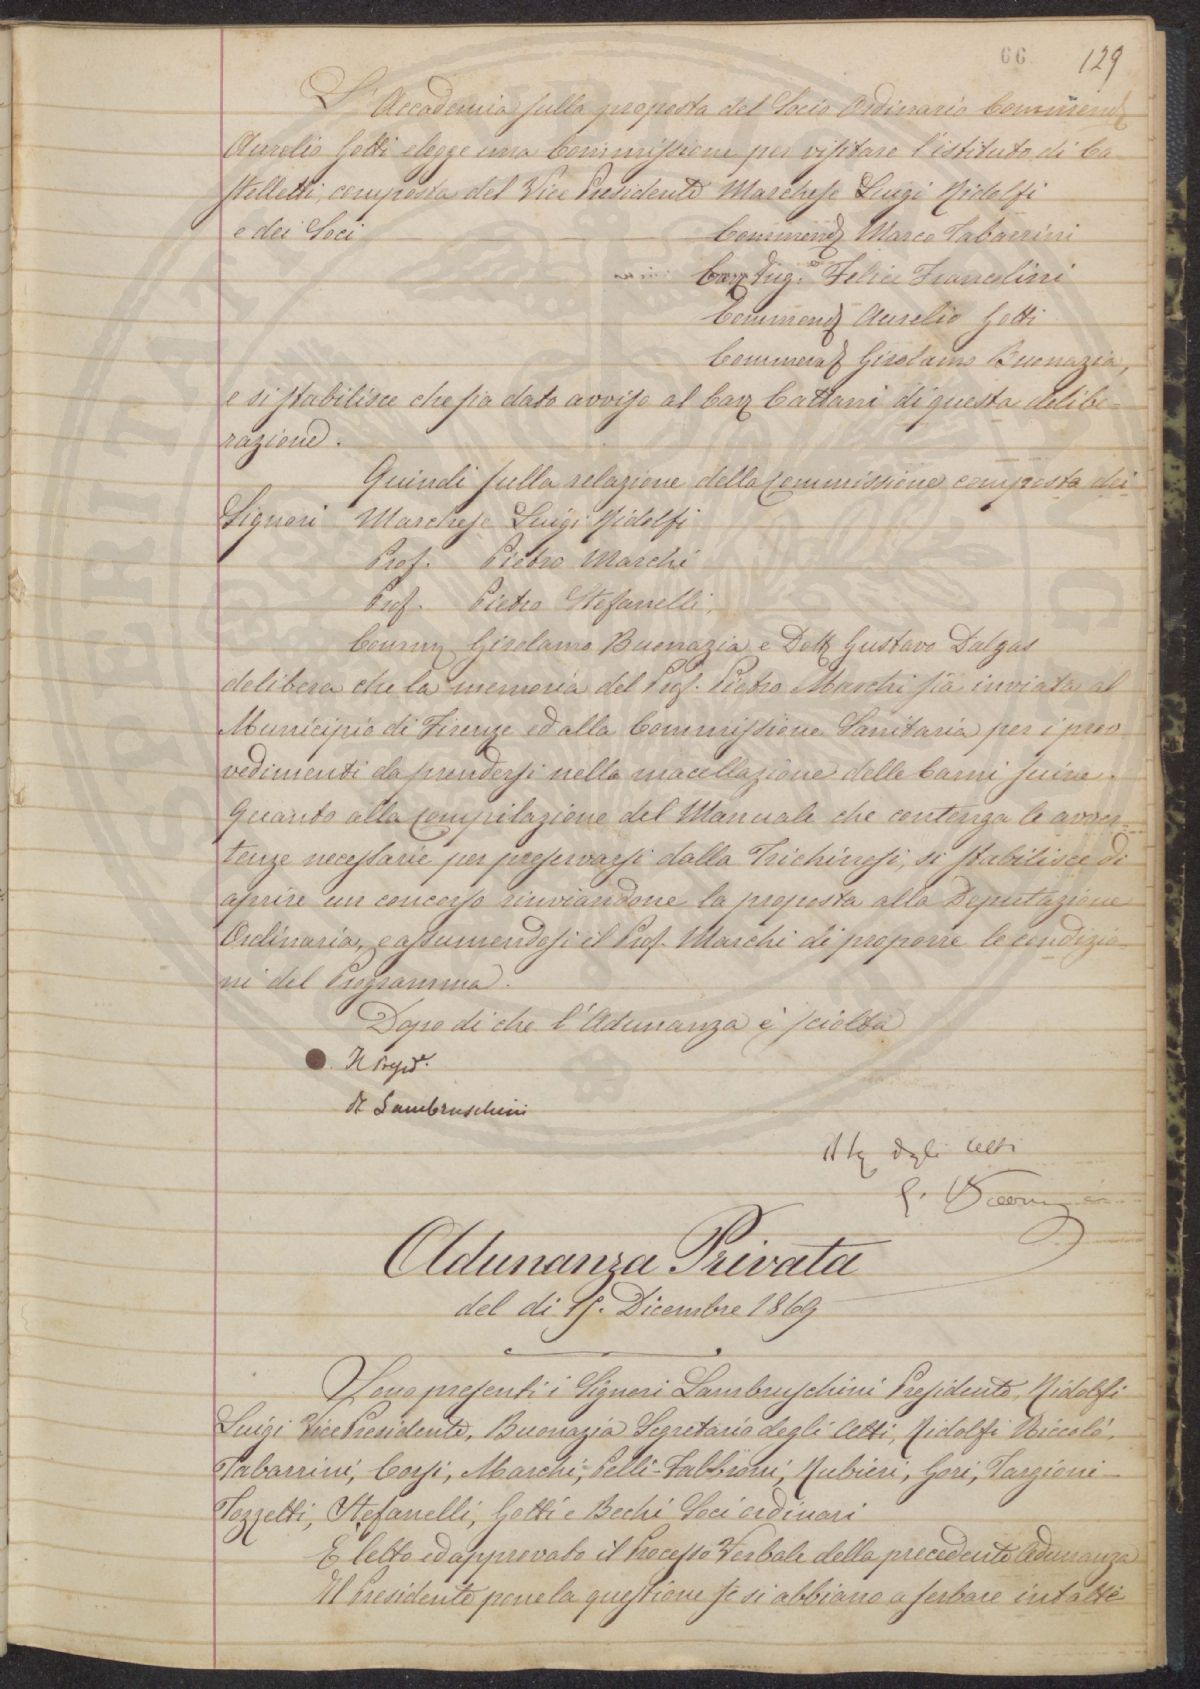 66 129
L'Accademia sulla proposta del Socio Ordinario Commend
Aurelio Gotti elegge una Commissione per visitare l'istituto di Ca
stelletti, composta del Vice Presidente Marchese Luigi Ridolfi
e dei Soci Commend Marco Tabarrini
Cav Ing.e Felice Francolini
Commend Aurelio Gotti
Commend Girolamo Buonazia,
e si stabilisce che sia dato avviso al Cav Cattani di questa delibe-
razione.
Quindi sulla relazione della Commissione composta dei
Signori Marchese Luigi Ridolfi
Prof. Pietro Marchi
Prof. Pietro Stefanelli,
Comm Girolamo Buonazia e Dott Gustavo Dalgas
delibera che la memoria del Prof. Pietro Marchi sia inviata al
Municipio di Firenze ed alla Commissione Sanitaria per i prov
vedimenti da prendersi nella macellazione delle Carni suine.
Quanto alla compilazione del Manuale che contenga le avver-
tenze necessarie per preservarsi dalla Trichinosi, si stabilisce di
aprire un concorso rinviandone la proposta alla Deputazione
Ordinaria, e assumendosi il Prof. Marchi di proporre le condizio-
ni del Programma.
Dopo di che l'Adunanza è sciolta
Il Presid.e
R Lambruschini
Il Seg degli Atti
G. Buonazia
Adunanza Privata
del dì 15. Dicembre 1869
Sono presenti i Signori Lambruschini Presidente, Ridolfi
Luigi Vice Presidente, Buonazia Segretario degli Atti, Ridolfi Niccolò,
Tabarrini, Corsi, Marchi, Pelli-Fabbroni, Rubieri, Gori, Targioni-
Tozzetti, Stefanelli, Gotti e Bechi Soci ordinari
È letto ed approvato il Processo Verbale della precedente Adunanza
Il Presidente pone la questione se si abbiano a serbare intatti